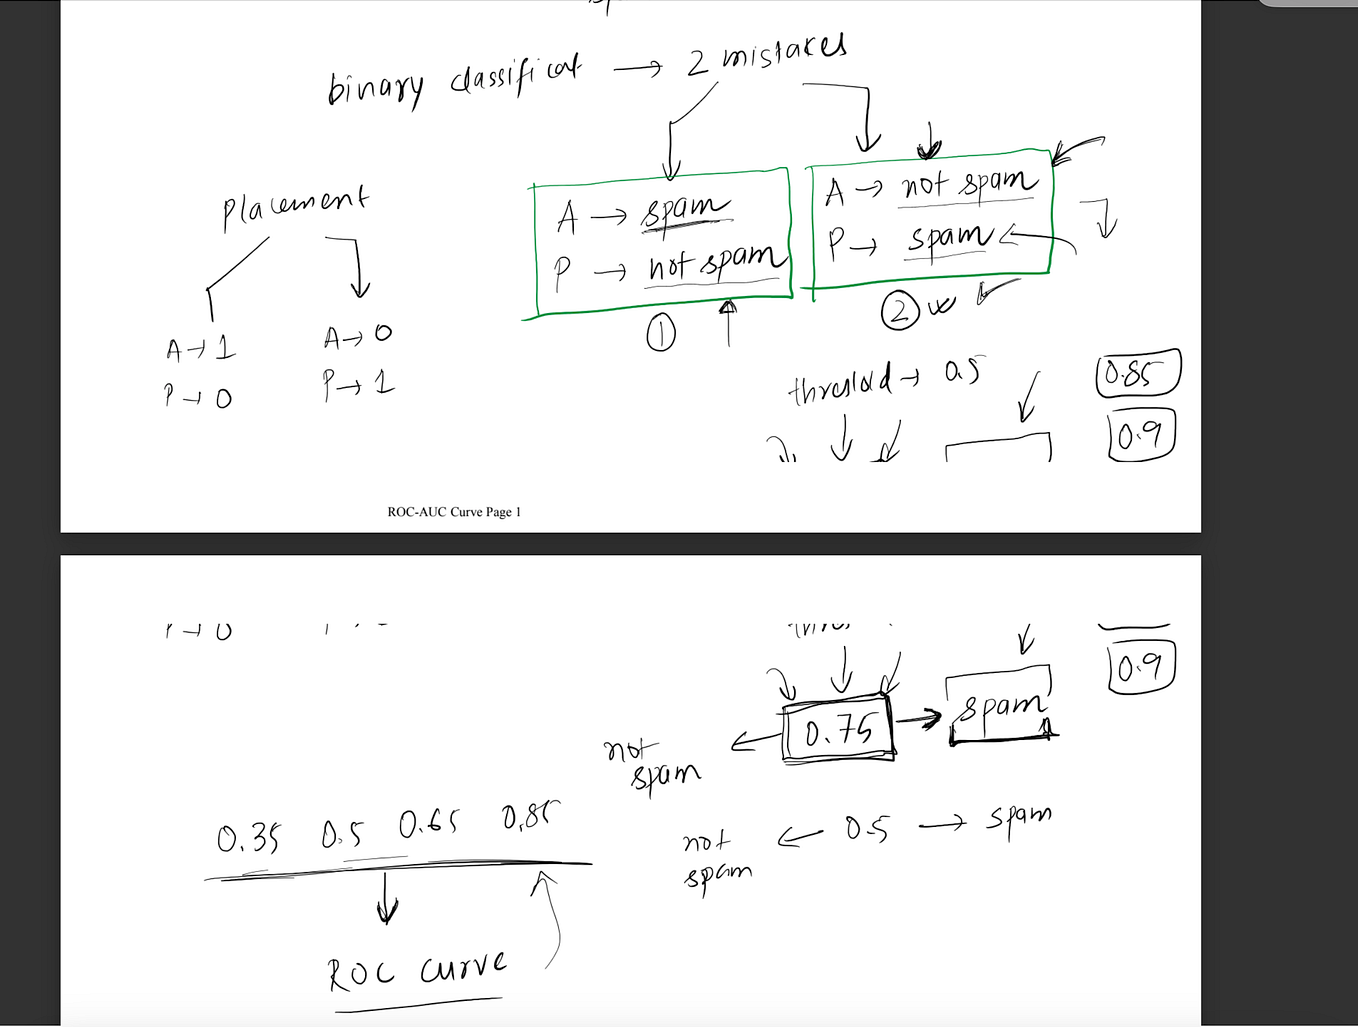 binary classificat → 2 mistakes
Placement
A → 1
P → 0
A → 0
P → 1
A → spam
P → not spam
1
A → not spam
P → spam
2
threshold → 0.5
0.85
0.9
ROC-AUC Curve Page 1
P → 0
0.9
not spam ← 0.75 → spam
0.35 0.5 0.65 0.85
not spam ← 0.5 → spam
ROC curve